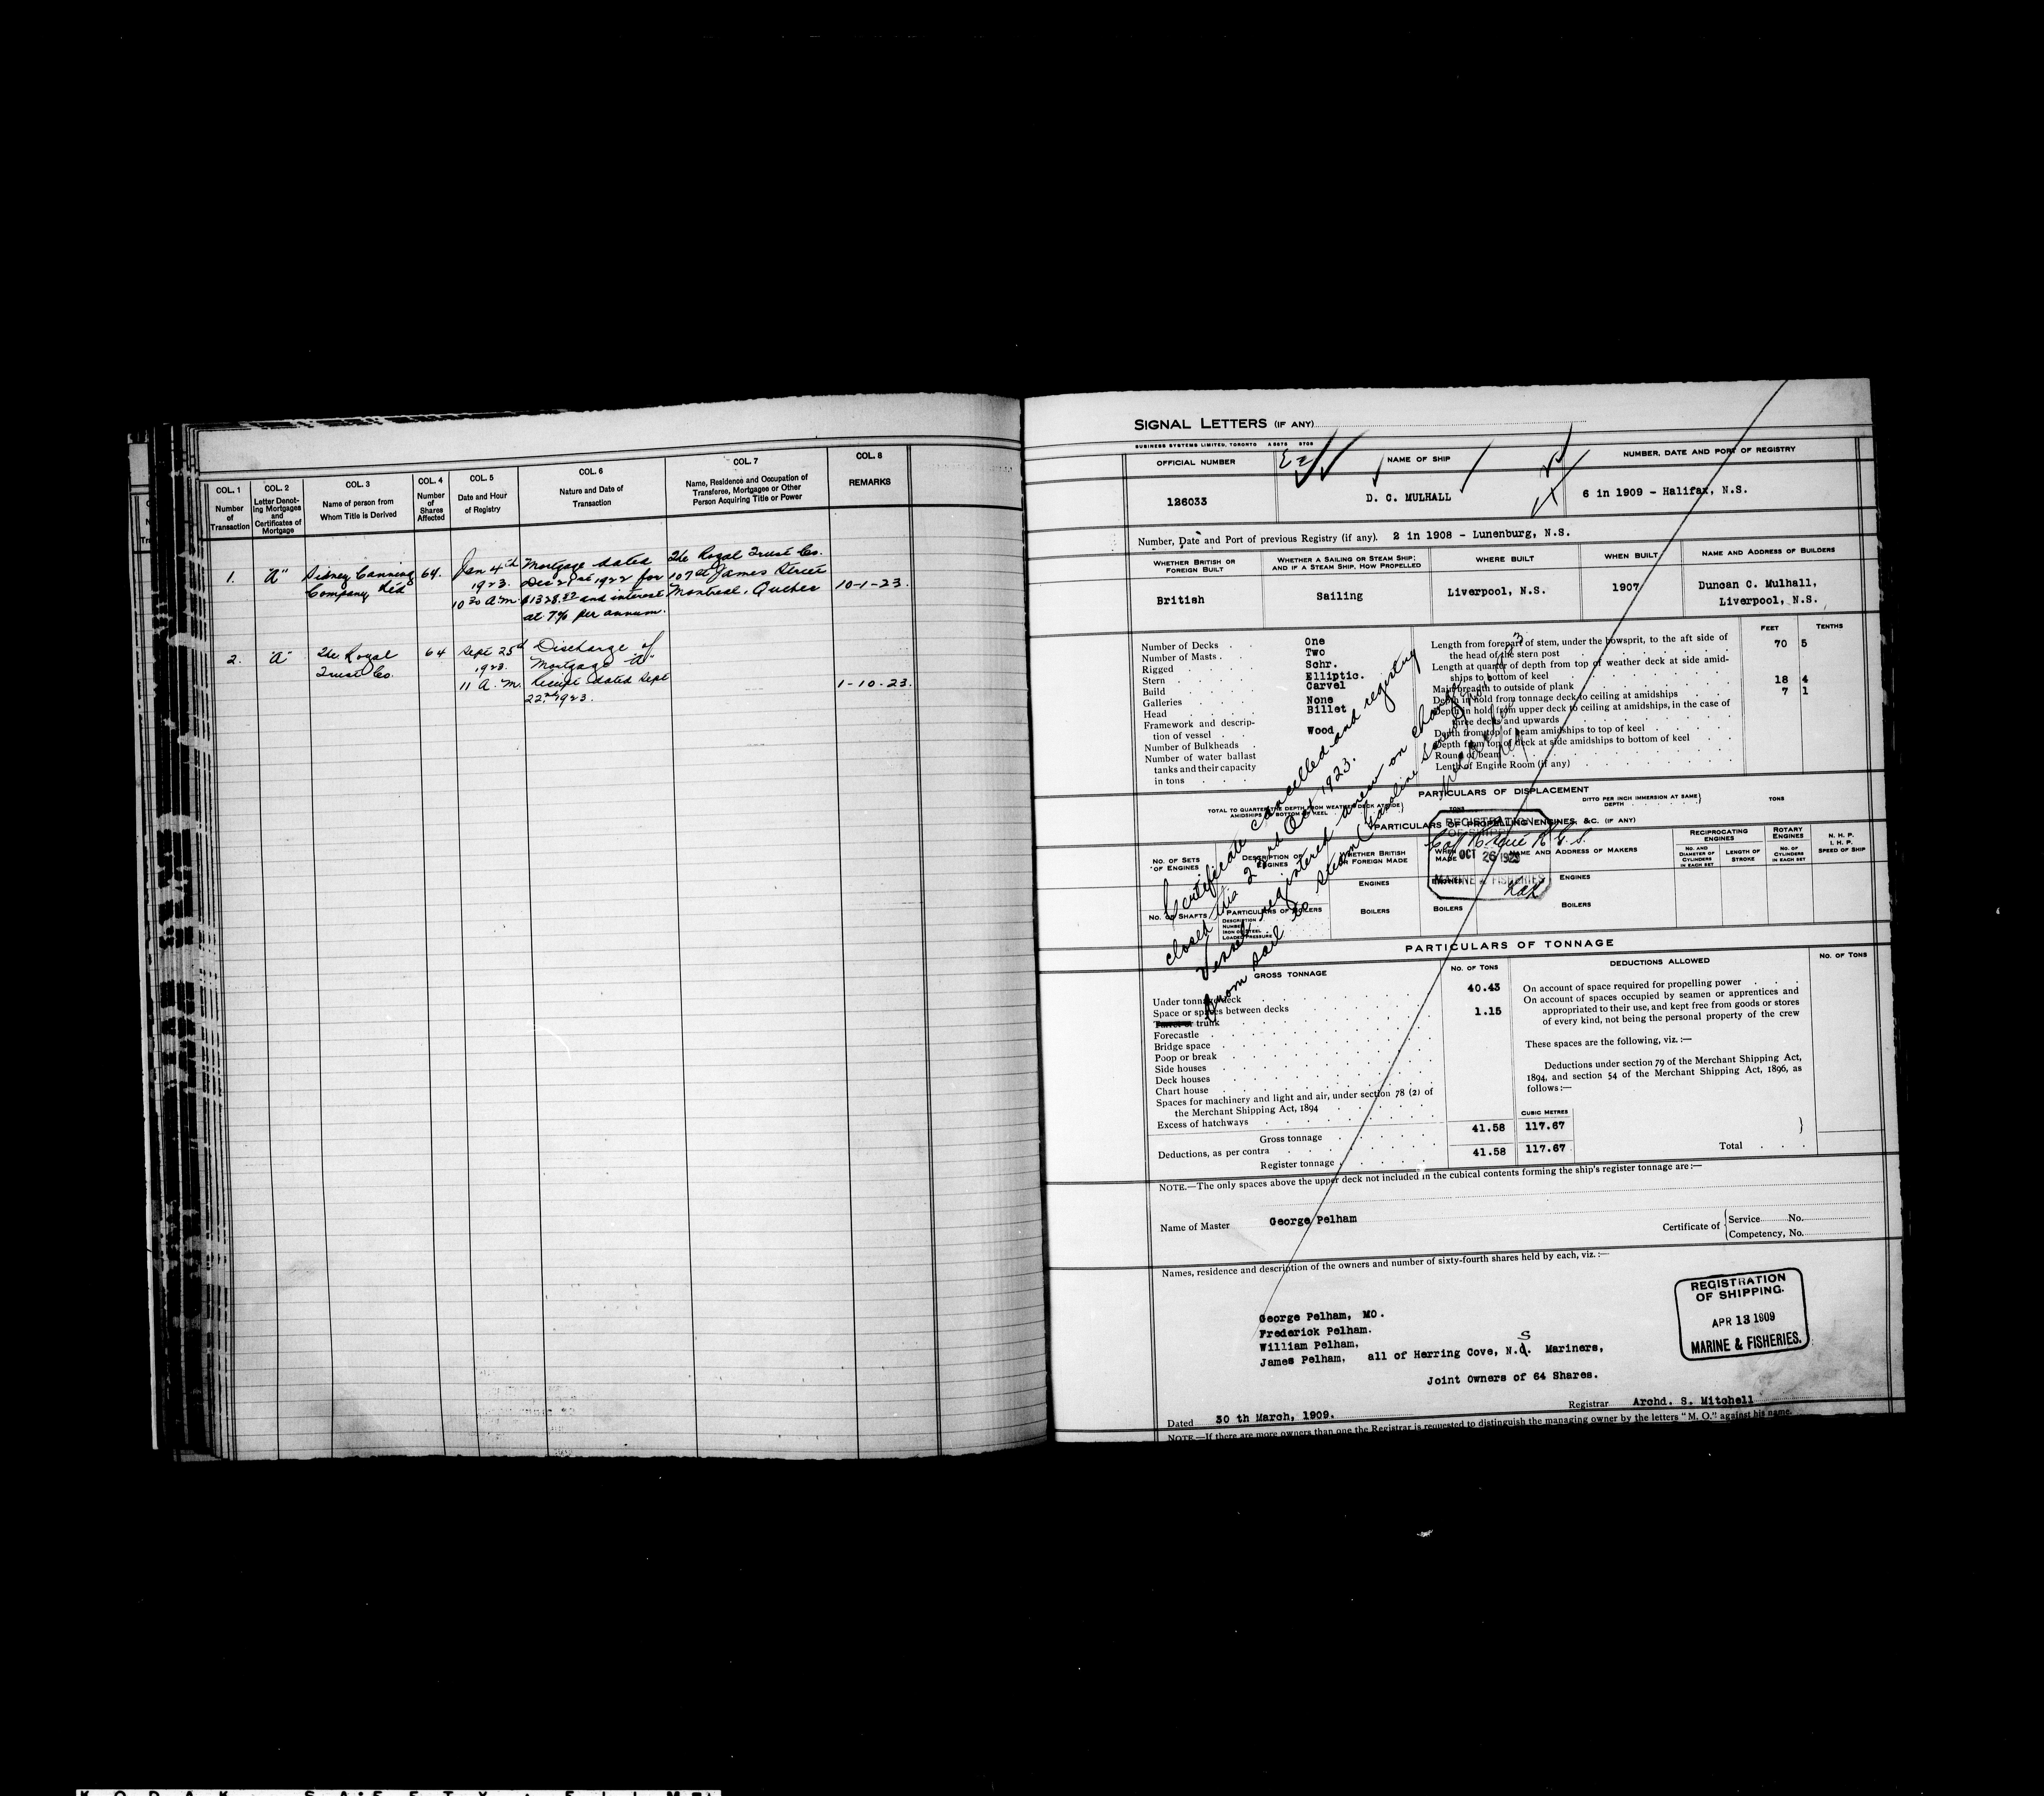 COL. 1
Number
of
Transaction
COL. 2
Letter Denot-
ing Mortgages
and
Certificates of
Mortgage
COL. 3
Name of person from
Whom Title is Derived
COL. 4
Number
of
Shares
Affected
COL. 5
Date and Hour
of Registry
COL. 6
Nature and Date of
Transaction
COL. 7
Name, Residence and Occupation of
Transferee, Mortgagee or Other
Person Acquiring Title or Power
COL. 8
REMARKS
1. "A" Sidney Canning 64. Jan 4th Mortgage dated The Royal Trust Co.
Company Ltd 1923. Dec 21st 1922 for 107 St James Street
10 30 A.M. and interest Montreal, Quebec 10-1-23.
at 7% per annum.
2. "A" The Royal 64 Sept 25th Discharge of
Trust Co. 1923. Mortgage "A"
11 A.M. Receipt dated Sept 1-10-23.
22nd 1923.
SIGNAL LETTERS (IF ANY)
BUSINESS SYSTEMS LIMITED, TORONTO
OFFICIAL NUMBER NAME OF SHIP NUMBER, DATE AND PORT OF REGISTRY
126033 D. C. MULHALL 6 in 1909 - Halifax, N.S.
Number, Date and Port of previous Registry (if any). 2 in 1908 - Lunenburg, N.S.
WHETHER BRITISH OR
FOREIGN BUILT
WHETHER A SAILING OR STEAM SHIP;
AND IF A STEAM SHIP, HOW PROPELLED
WHERE BUILT
WHEN BUILT
NAME AND ADDRESS OF BUILDERS
British Sailing Liverpool, N.S. 1907 Duncan C. Mulhall,
Liverpool, N.S.
FEET TENTHS
Number of Decks One
Number of Masts Two
Rigged Schr.
Stern Elliptic.
Build Carvel
Galleries None
Head Billet
Framework and descrip-
tion of vessel Wood
Number of Bulkheads
Number of water ballast
tanks and their capacity
in tons
Length from forepart of stem, under the bowsprit, to the aft side of
the head of the stern post 70 5
Length at quarter of depth from top of weather deck at side amid-
ships to bottom of keel
Main breadth to outside of plank 18 4
Depth in hold from tonnage deck to ceiling at amidships 7 1
Depth in hold from upper deck to ceiling at amidships, in the case of
three decks and upwards
Depth from top of beam amidships to top of keel
Depth from top of deck at side amidships to bottom of keel
Round of beam
Length of Engine Room (if any)
Certificate cancelled and registry
closed this 22nd Oct 1923.
Vessel registered anew on change
from sail to steam (Gasoline Screw)
PARTICULARS OF DISPLACEMENT
TOTAL TO QUARTER THE DEPTH FROM WEATHER DECK AT SIDE
AMIDSHIPS TO BOTTOM OF KEEL
TONS
DITTO PER INCH IMMERSION AT SAME
DEPTH
TONS
PARTICULARS OF PROPELLING ENGINES, &C. (IF ANY)
REGISTRATION
OF SHIPPING
OCT 26 1923
MARINE & FISHERIES
NO. OF SETS
OF ENGINES
DESCRIPTION OF
ENGINES
WHETHER BRITISH
OR FOREIGN MADE
WHEN
MADE
NAME AND ADDRESS OF MAKERS
RECIPROCATING
ENGINES
NO. AND
DIAMETER OF
CYLINDERS
IN EACH SET
LENGTH OF
STROKE
ROTARY
ENGINES
NO. OF
CYLINDERS
IN EACH SET
N. H. P.
I. H. P.
SPEED OF SHIP
ENGINES ENGINES ENGINES
NO. OF SHAFTS
PARTICULARS OF BOILERS
DESCRIPTION
NUMBER
IRON OR STEEL
LOADED PRESSURE
BOILERS BOILERS BOILERS
PARTICULARS OF TONNAGE
GROSS TONNAGE NO. OF TONS DEDUCTIONS ALLOWED NO. OF TONS
Under tonnage deck 40.43
Space or spaces between decks
trunk 1.15
Forecastle
Bridge space
Poop or break
Side houses
Deck houses
Chart house
Spaces for machinery and light and air, under section 78 (2) of
the Merchant Shipping Act, 1894
Excess of hatchways
On account of space required for propelling power
On account of spaces occupied by seamen or apprentices and
appropriated to their use, and kept free from goods or stores
of every kind, not being the personal property of the crew
These spaces are the following, viz.:—
Deductions under section 79 of the Merchant Shipping Act,
1894, and section 54 of the Merchant Shipping Act, 1896, as
follows:—
CUBIC METRES
Gross tonnage 41.58 117.67
Deductions, as per contra
Register tonnage 41.58 117.67
Total
NOTE.—The only spaces above the upper deck not included in the cubical contents forming the ship's register tonnage are:—
Name of Master George Pelham
Certificate of Service No.
Competency, No.
Names, residence and description of the owners and number of sixty-fourth shares held by each, viz.:—
George Pelham, MO.
Frederick Pelham.
William Pelham,
James Pelham, all of Herring Cove, N.S. Mariners,
Joint Owners of 64 Shares.
REGISTRATION
OF SHIPPING.
APR 13 1909
MARINE & FISHERIES.
Dated 30 th March, 1909.
Registrar Archd. S. Mitchell
NOTE.—If there are more owners than one the Registrar is requested to distinguish the managing owner by the letters "M. O." against his name.